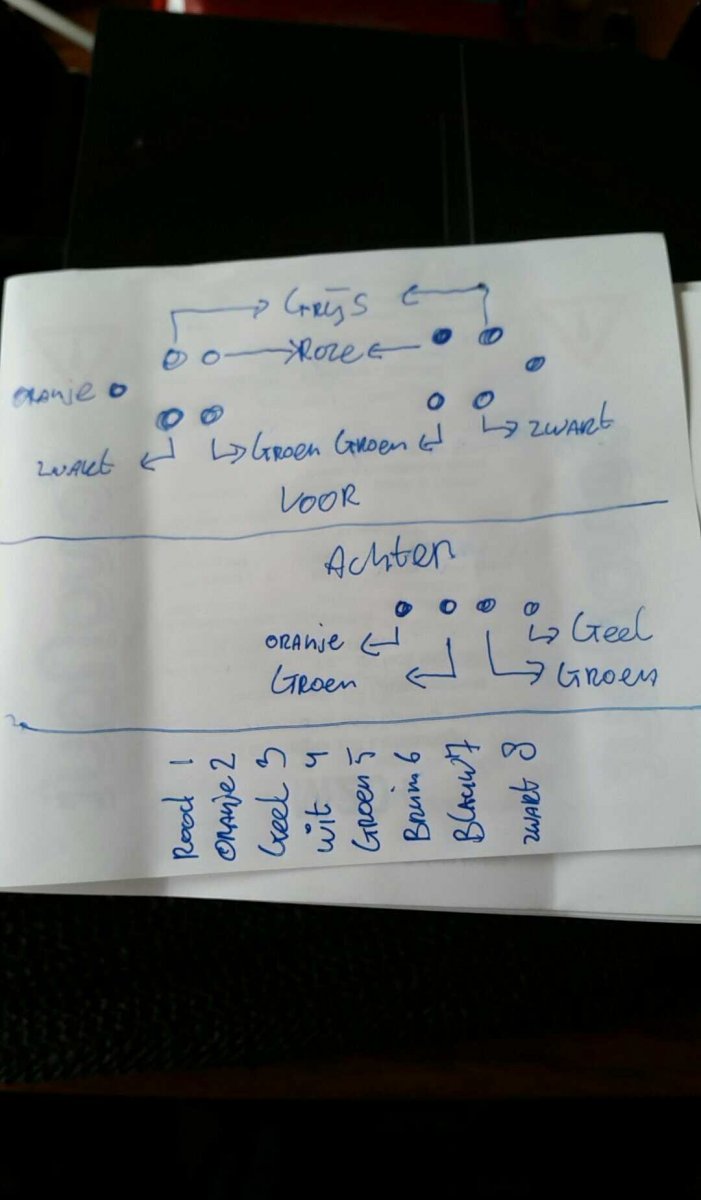 GRIJS
ROZE
ORANJE
ZWART GROEN GROEN ZWART
VOOR
Achter
ORANJE Geel
GROEN GROEN
Rood 1
ORANJE 2
Geel 3
wit 4
GROEN 5
Bruin 6
Blauw 7
ZWART 8